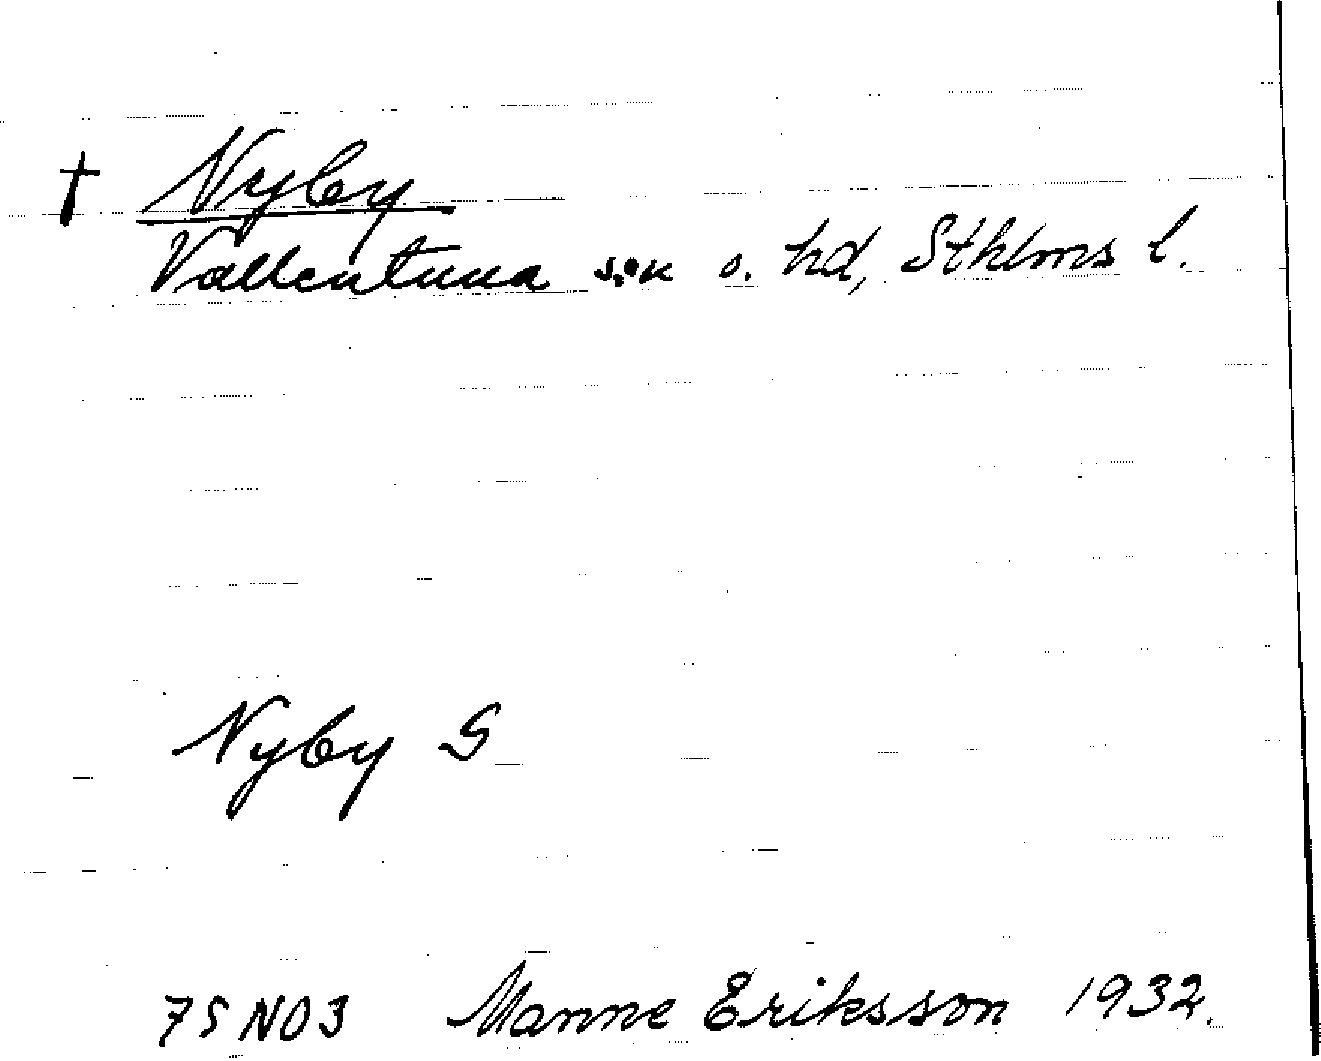 † Nyby
Vallentuna sn o. hd, Sthlms l.
Nyby S
75 NO3 Manne Eriksson 1932.